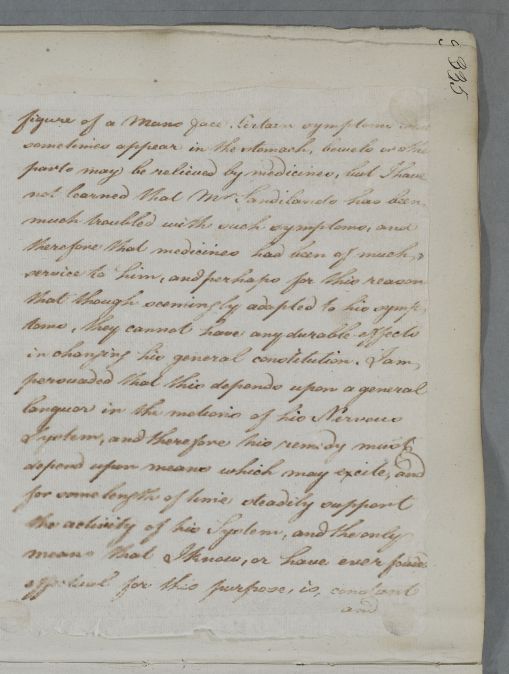 335
figure of a Mans face. Certain symptoms
sometimes appear in the stomach, bowels or other
parts may be relieved by medicines, but I have
not learned that Mr. Sandilands has been
much troubled with such symptoms, and
therefore that medicines had been of much
service to him, and perhaps for this reason
that though seemingly adapted to his symp,
toms, they cannot have any durable effects
in changing his general constitution. I am,
persuaded that this depends upon a general
languor in the motions of his Nervous
System, and therefore his remedy must
depend upon means which may excite, and
for some length of time steadily support
the activity of his System, and the only
means that I know, or have ever found
effectual for this purpose, is, constant
and